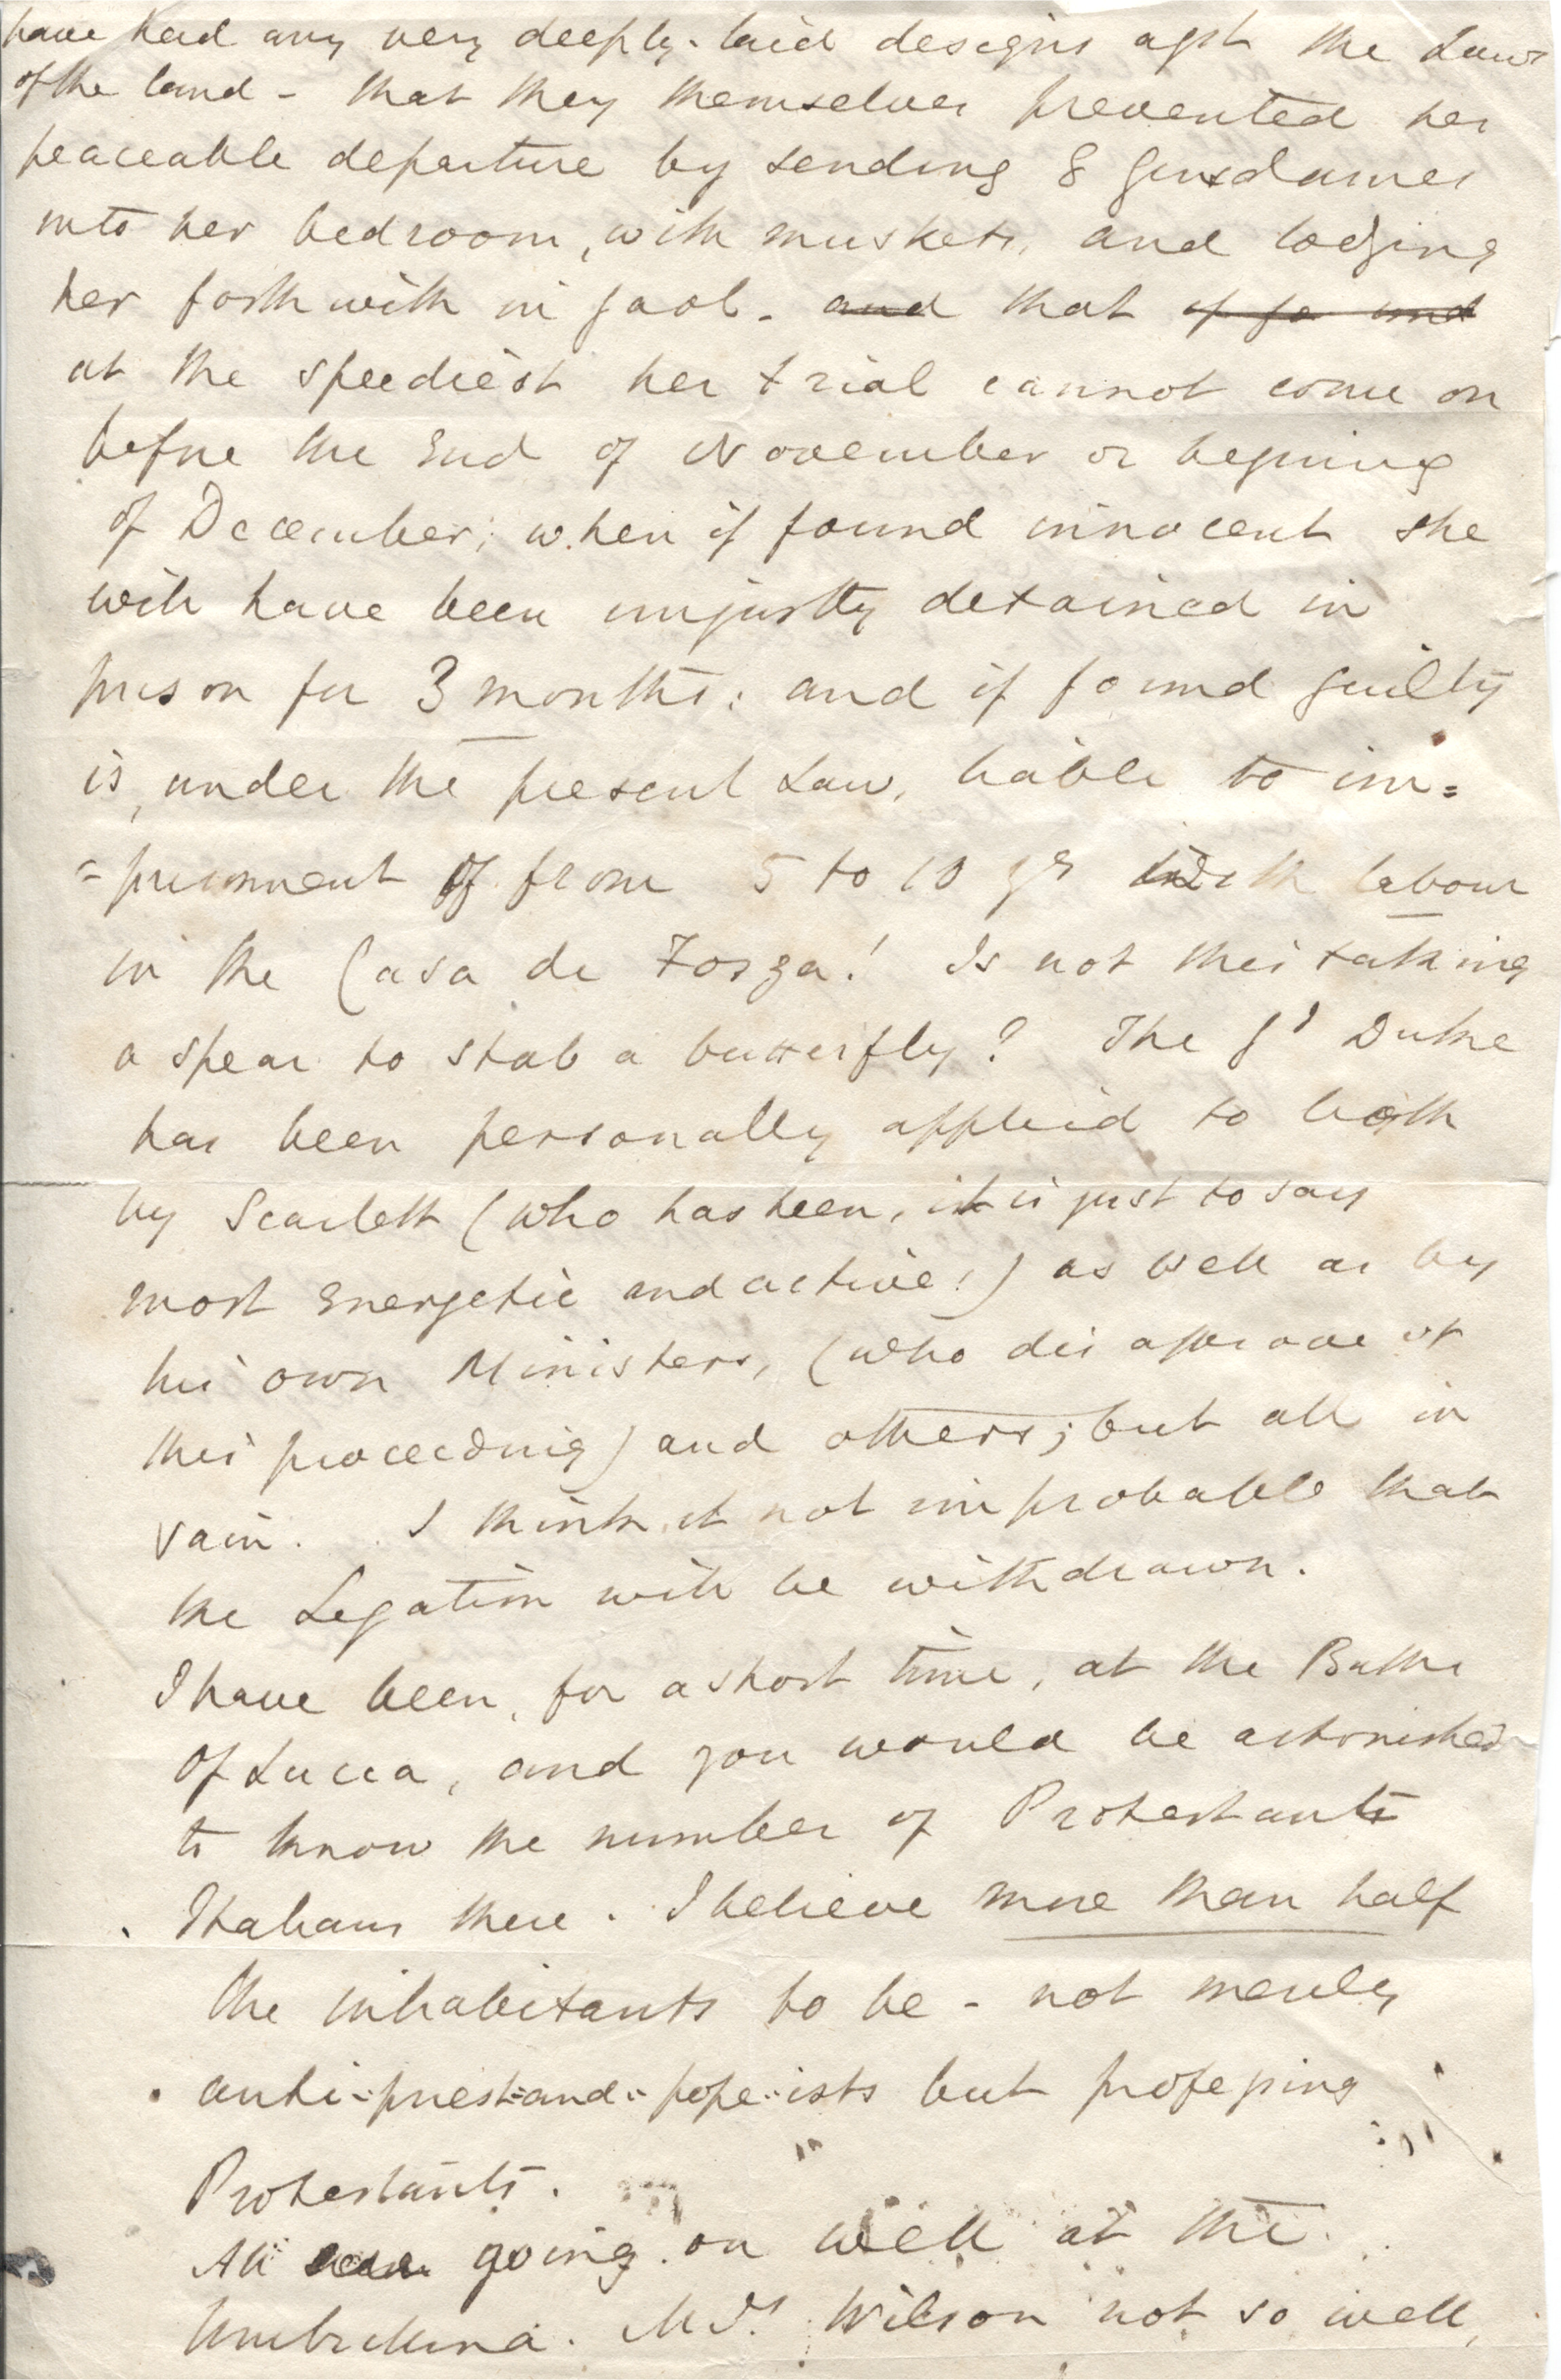 have had any very deeply-laid designs agst the Laws
of the land - that they themselves prevented her
peaceable departure by sending 8 gensdarmes
into her bedroom, with muskets, and lodging
her forthwith in gaol - and that
at the speediest her trial cannot come on
before the End of November or begining
of December; when if found innocent she
will have been unjustly detained in
prison for 3 months: and if found guilty
is, under the present Law, liable to im=
=prisonment of from 5 to 10 yrs with labour
in the Casa de Forza! Is not this taking
a spear to stab a butterfly? The Gd Duke
has been personally applied to both
by Scarlett (who has been, it is just to say
most Energetic and active!) as well as by
his own Ministers, (who disapprove of
this proceeding) and others; but all in
vain. I think it not improbable that
the Legation will be withdrawn.
I have been, for a short time, at the Baths
of Lucca, and you would be astonished
to know the number of Protestants
Italians there. I believe more than half
the inhabitants to be - not merely
anti-priest=and-pope-ists but professing
Protestants.
All going on well at the
Umbrellina. Mrs. Wilson not so well,